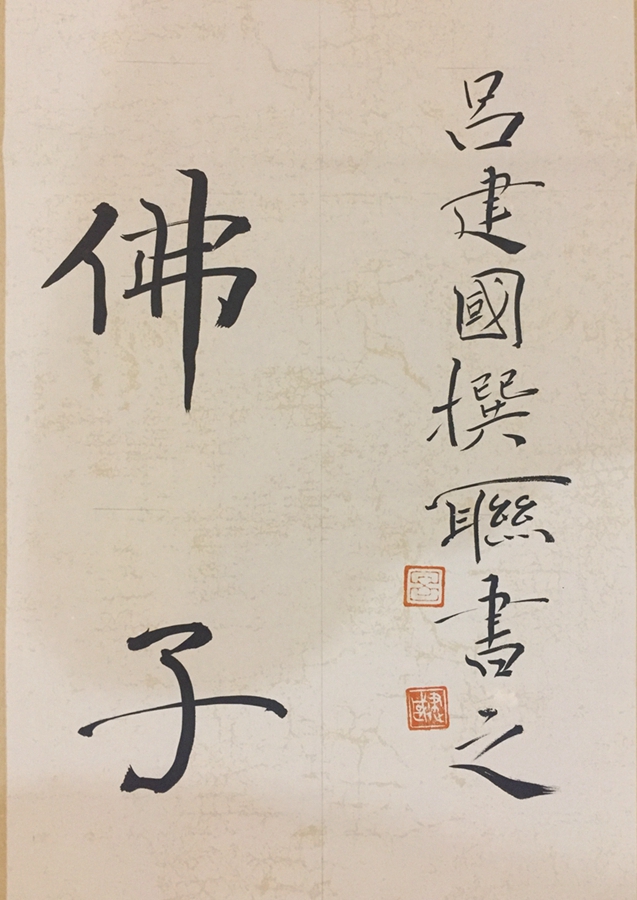 呂建國撰聯書之
佛子